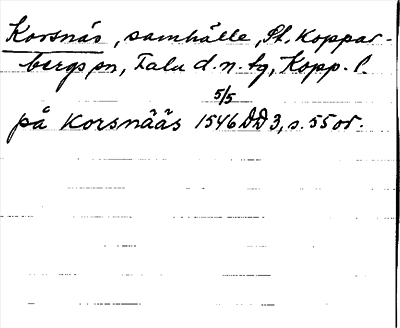 Korsnäs, samhälle, St. Koppar-
bergs sn, Falu d. n. tg, Kopp. l.
5/5
på Korsnääs 1546 DD 3, s. 55 or.